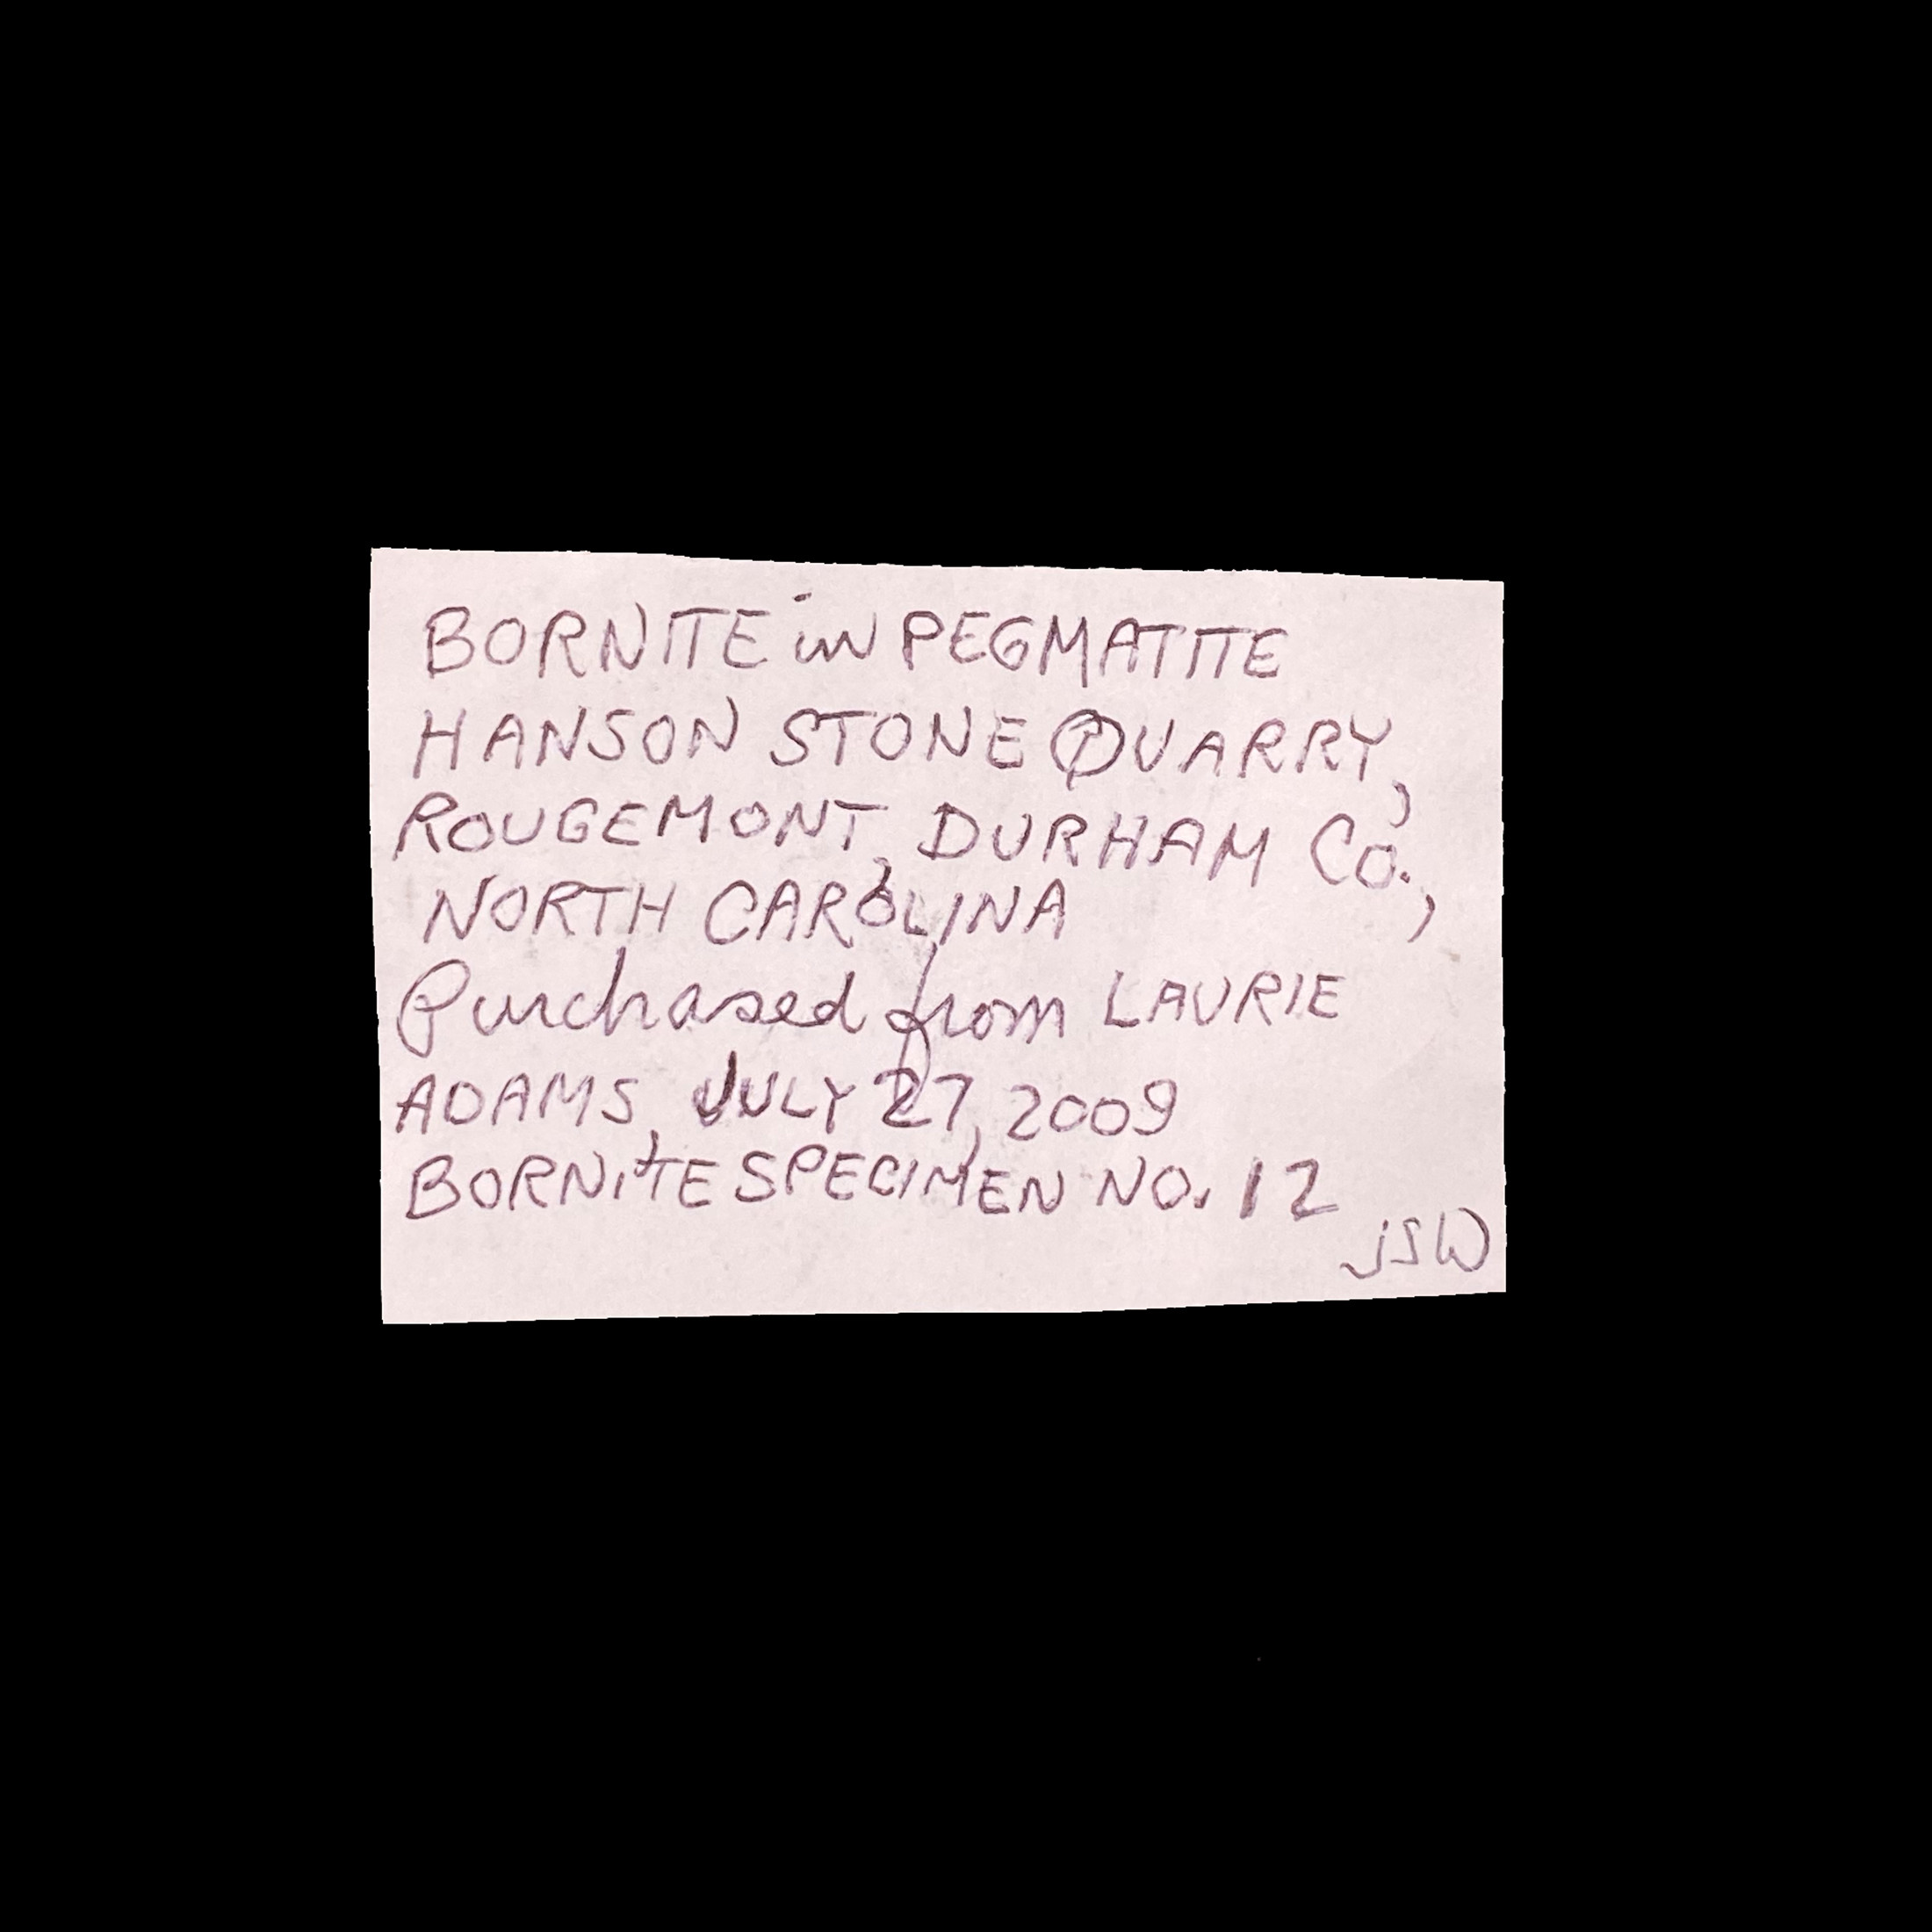 BORNITE in PEGMATITE
HANSON STONE QUARRY,
ROUGEMONT, DURHAM Co.,
NORTH CAROLINA
Purchased from LAURIE
ADAMS, JULY 27, 2009
BORNiTE SPECIMEN NO. 12
jSW